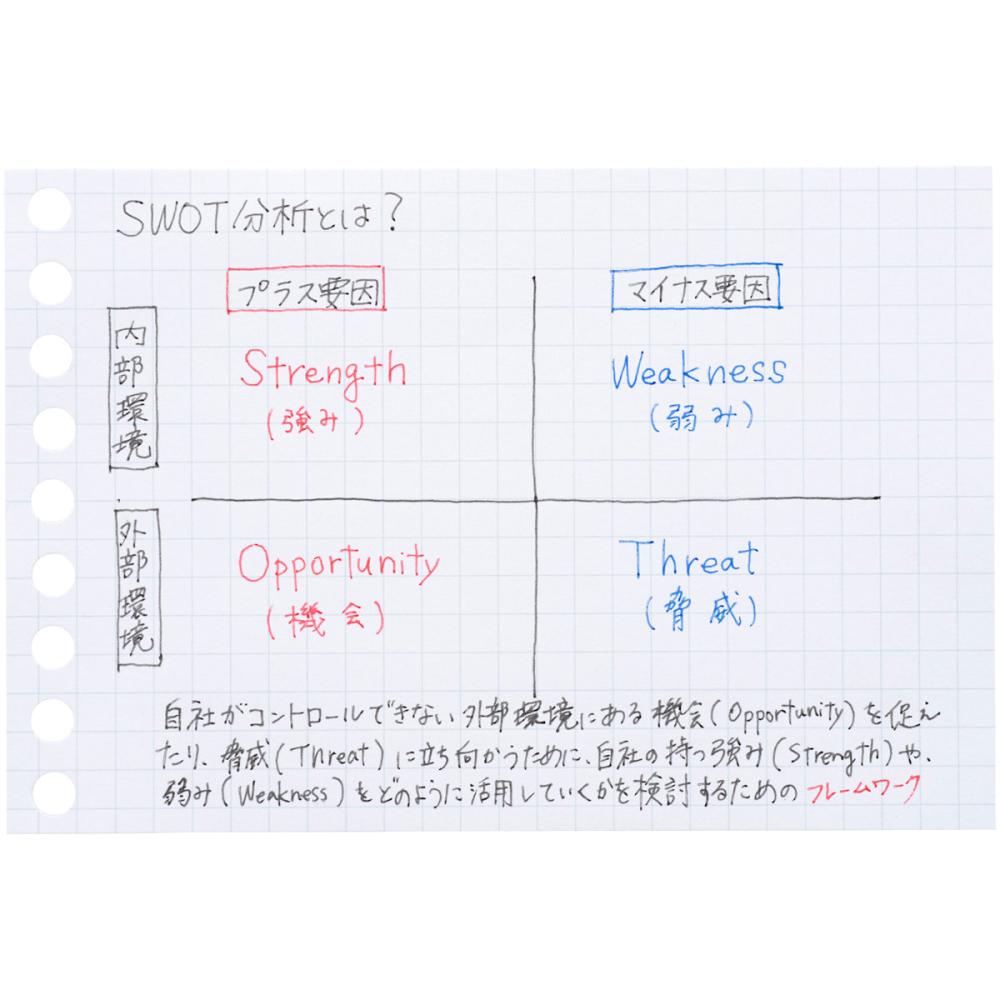 SWOT分析とは?
プラス要因
マイナス要因
内部環境
Strength
(強み)
Weakness
(弱み)
外部環境
Opportunity
(機会)
Threat
(脅威)
自社がコントロールできない外部環境にある機会(Opportunity)を促え
たり、脅威(Threat)に立ち向かうために、自社の持つ強み(Strength)や、
弱み(Weakness)をどのように活用していくかを検討するためのフレームワーク